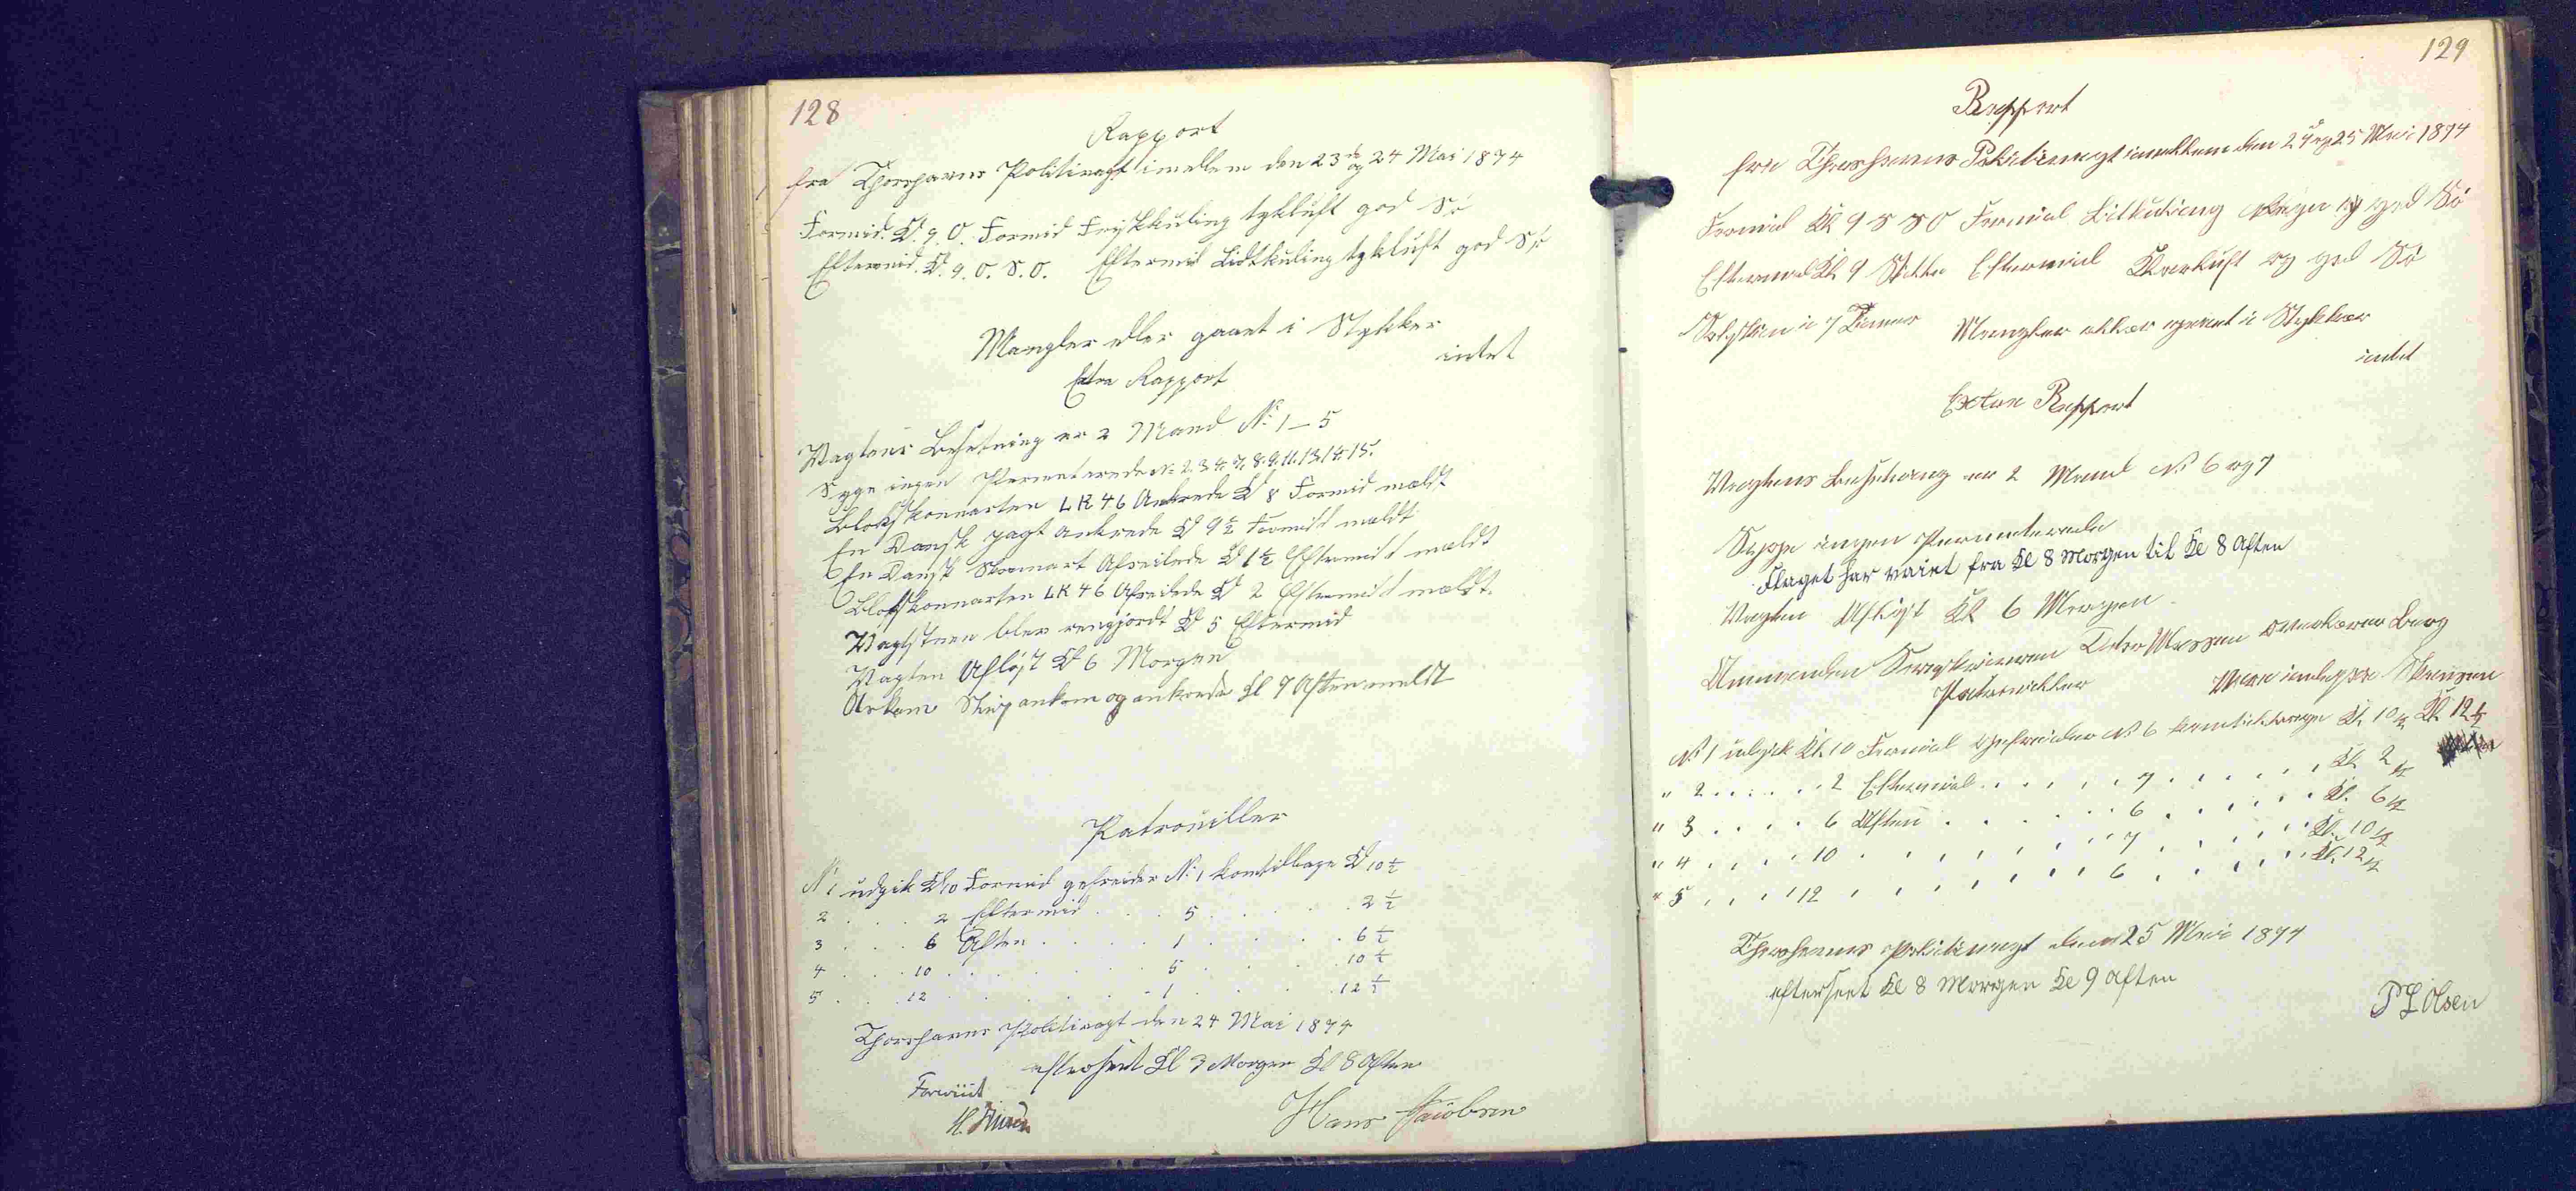 128
Rapport
fra Thorshavns Politivagt imellem den 23de og 24 Mai 1874
Formid. Kl. 9. O. Formid Friskkuling tykluft god Sö
Eftermid. Kl. 9. O. S. O. Eftermid Lidtkuling tykluft god Sö
Mangler eller gaaet i Stykker
intet
Extra Rapport
Vagtens Besetning er 2 Mand No 1 – 5
Syge ingen Permeterede No 2. 3. 4. 7. 8. 9. 11. 13. 14. 15.
Blokskonnarten LK 46 Ankrede Kl 8 Formid mældt
En Dansk Jagt ankrede Kl 9½ Formidd mældt
En Dansk Skonnart Afseilede Kl 1½ Eftermidd mældt
Blokskonnarten LK 46 Afseilede Kl 2 Eftermidd mældt.
Vagtstuen blev rengjordt Kl 5 Eftermid
Vagten Aflöst Kl 6 Morgen
Skip ankom og ankrede Kl 7 Aften meldt
Patrouiller
No 1 udgik Kl 10 Formid gefreider No 1 komtilbage Kl 10½
2 . . . 2 Eftermid . . . 5 . . . . 2½
3 . . . 6 Aften . . . . 1 . . . . 6½
4 . . . 10 . . . . . . 5 . . . . 10½
5 . . . 12 . . . . . . 1 . . . . 12½
Thorshavns Politivagt den 24 Mai 1874
efterseet Kl 3 Morgen Kl 8 Aften
Foreviist
Hans Jacobsen
129
Rapport
fra Thorshavns Politivagt imellem den 24 og 25 Mai 1874
Formid Kl 9 S S O Formid Lidkuling Regn og god Sö
Eftermid Kl 9 Stille Eftermid Klarluft og god Sö
Solskin i 7 Timer Mangler eller gaaet i Stykker
intet
Extra Rapport
Vagtens Besetning er 2 Mand No 6 og 7
Syge ingen Permeterede
Flaget har vaiet fra Kl 8 Morgen til Kl 8 Aften
Vagten Aflöst Kl 6 Morgen
Patrouiller
No 1 udgik Kl. 10 Formid gefreider No 6 komtilbage Kl. 10½ Kl 12½
" 2 . . . . . 2 Eftermid . . . . . 7 . . . . . Kl 2½
" 3 . . . . 6 Aften . . . . . 6 . . . . . Kl. 6½
" 4 . . . . 10 . . . . . . . 7 . . . . . Kl. 10½
" 5 . . . . 12 . . . . . . . 6 . . . . . Kl. 12½
Thorshavns Politivagt den 25 Mai 1874
efterseet Kl 8 Morgen Kl 9 Aften
P L Olsen